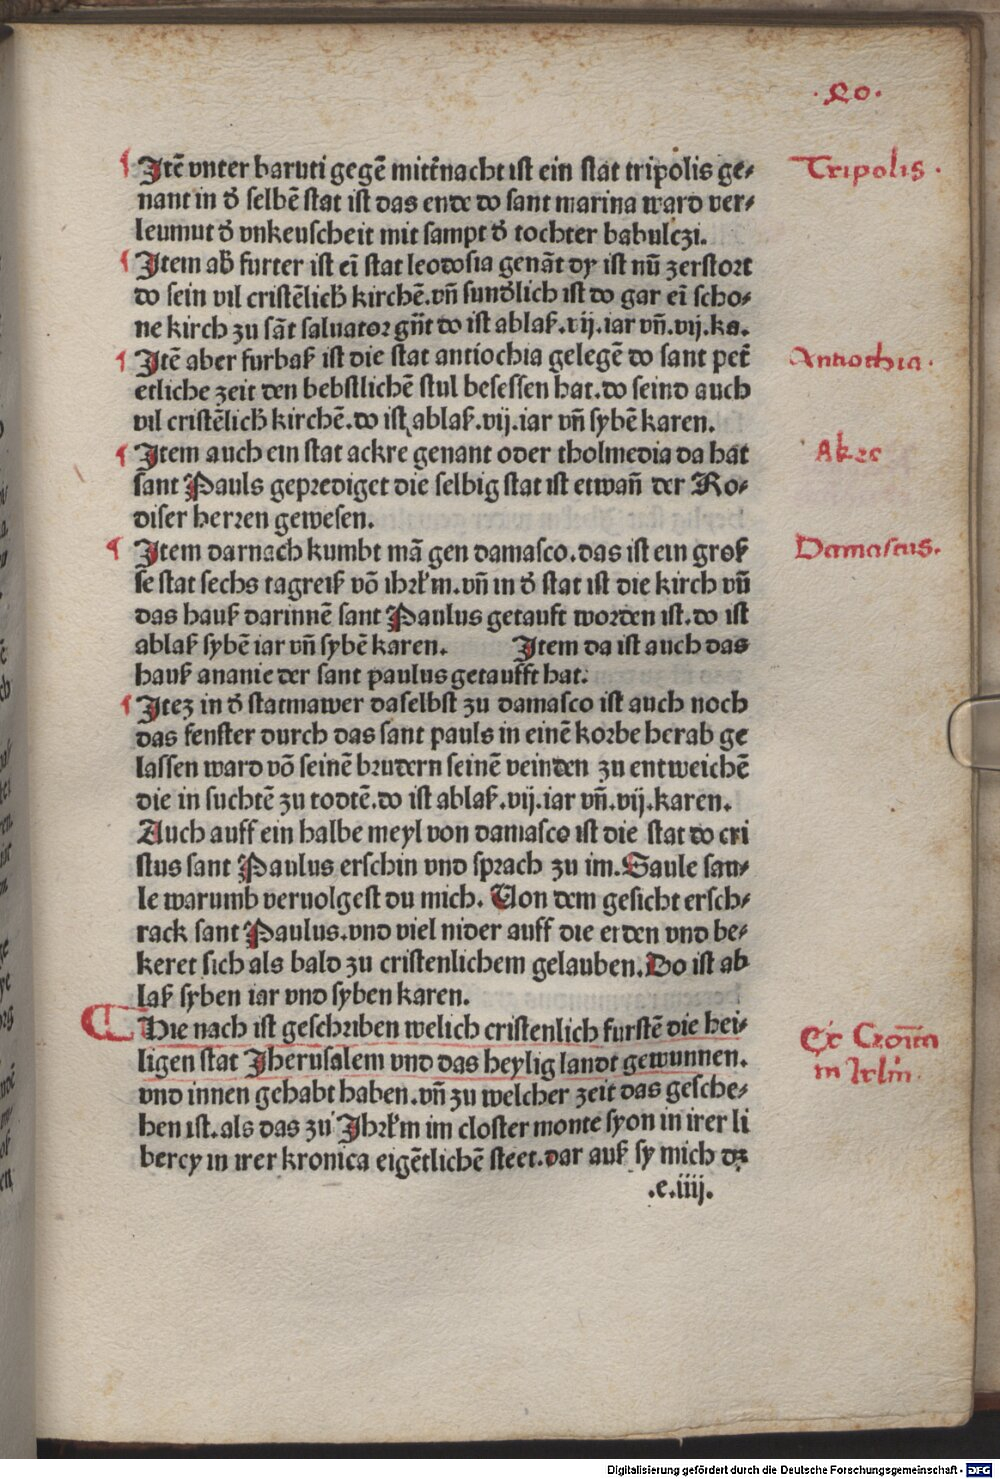 .40.
¶ Itē vnter baruti gegē mittnacht ist ein stat tripolis ge⸗
Tripolis.
nant in d̄ selbē stat ist das ende do sant marina ward ver⸗
leumut d̄ vnkeuscheit mit sampt d̄ tochter babulczi.
¶ Item ab̄ furter ist eī stat leodosia genāt dy ist nū zerstort
do sein vil cristēlich̄ kirchē.vn̄ sund̄lich ist do gar eī scho⸗
ne kirch zu sāt saluator gn̄t do ist ablaß.vij.iar vn̄.vij.ka.
¶ Itē aber furbaß ist die stat antiochia gelegē do sant pet̄
Antiochia.
etliche zeit den bebstlichē stul besessen hat.do seind auch
vil cristēlich̄ kirchē.do ist ablaß.vij.iar vn̄ sybē karen.
¶ Item auch ein stat ackre genant oder tholmedia da hat
Akre
sant Pauls geprediget die selbig stat ist etwan̄ der Ro⸗
diser herren gewesen.
¶ Item darnach kumbt mā gen damasco.das ist ein groß
Damascus.
se stat sechs tagreiß vō ihrl̄m.vn̄ in d̄ stat ist die kirch vn̄
das hauß darinnē sant Paulus getauft worden ist.do ist
ablaß sybē iar vn̄ sybē karen. Item da ist auch das
hauß ananie der sant paulus getaufft hat.
¶ Itez in d̄ statmawer daselbst zu damasco ist auch noch
das fenster durch das sant pauls in einē korbe herab ge
lassen ward vō seinē brudern seinē veinden zu entweichē
die in suchtē zu todtē.do ist ablaß.vij.iar vn̄.vij.karen.
Auch auff ein halbe meyl von damasco ist die stat do cri
stus sant Paulus erschin vnd sprach zu im.Saule sau⸗
le warumb veruolgest du mich. Von dem gesicht ersch⸗
rack sant Paulus.vnd viel nider auff die erden vnd be⸗
keret sich als bald zu cristenlichem gelauben.Do ist ab
laß syben iar vnd syben karen.
¶ Hie nach ist geschriben welich cristenlich furstē die hei⸗
Ex Cronica
ligen stat Jherusalem vnd das heylig landt gewunnen.
in Jrl̄m.
vnd innen gehabt haben.vn̄ zu welcher zeit das gesche⸗
hen ist.als das zu Jhrl̄m im closter monte syon in irer li
bercy in irer kronica eigētlichē steet.dar auß sy mich dz
.e.iiij.
Digitalisierung gefördert durch die Deutsche Forschungsgemeinschaft - DFG